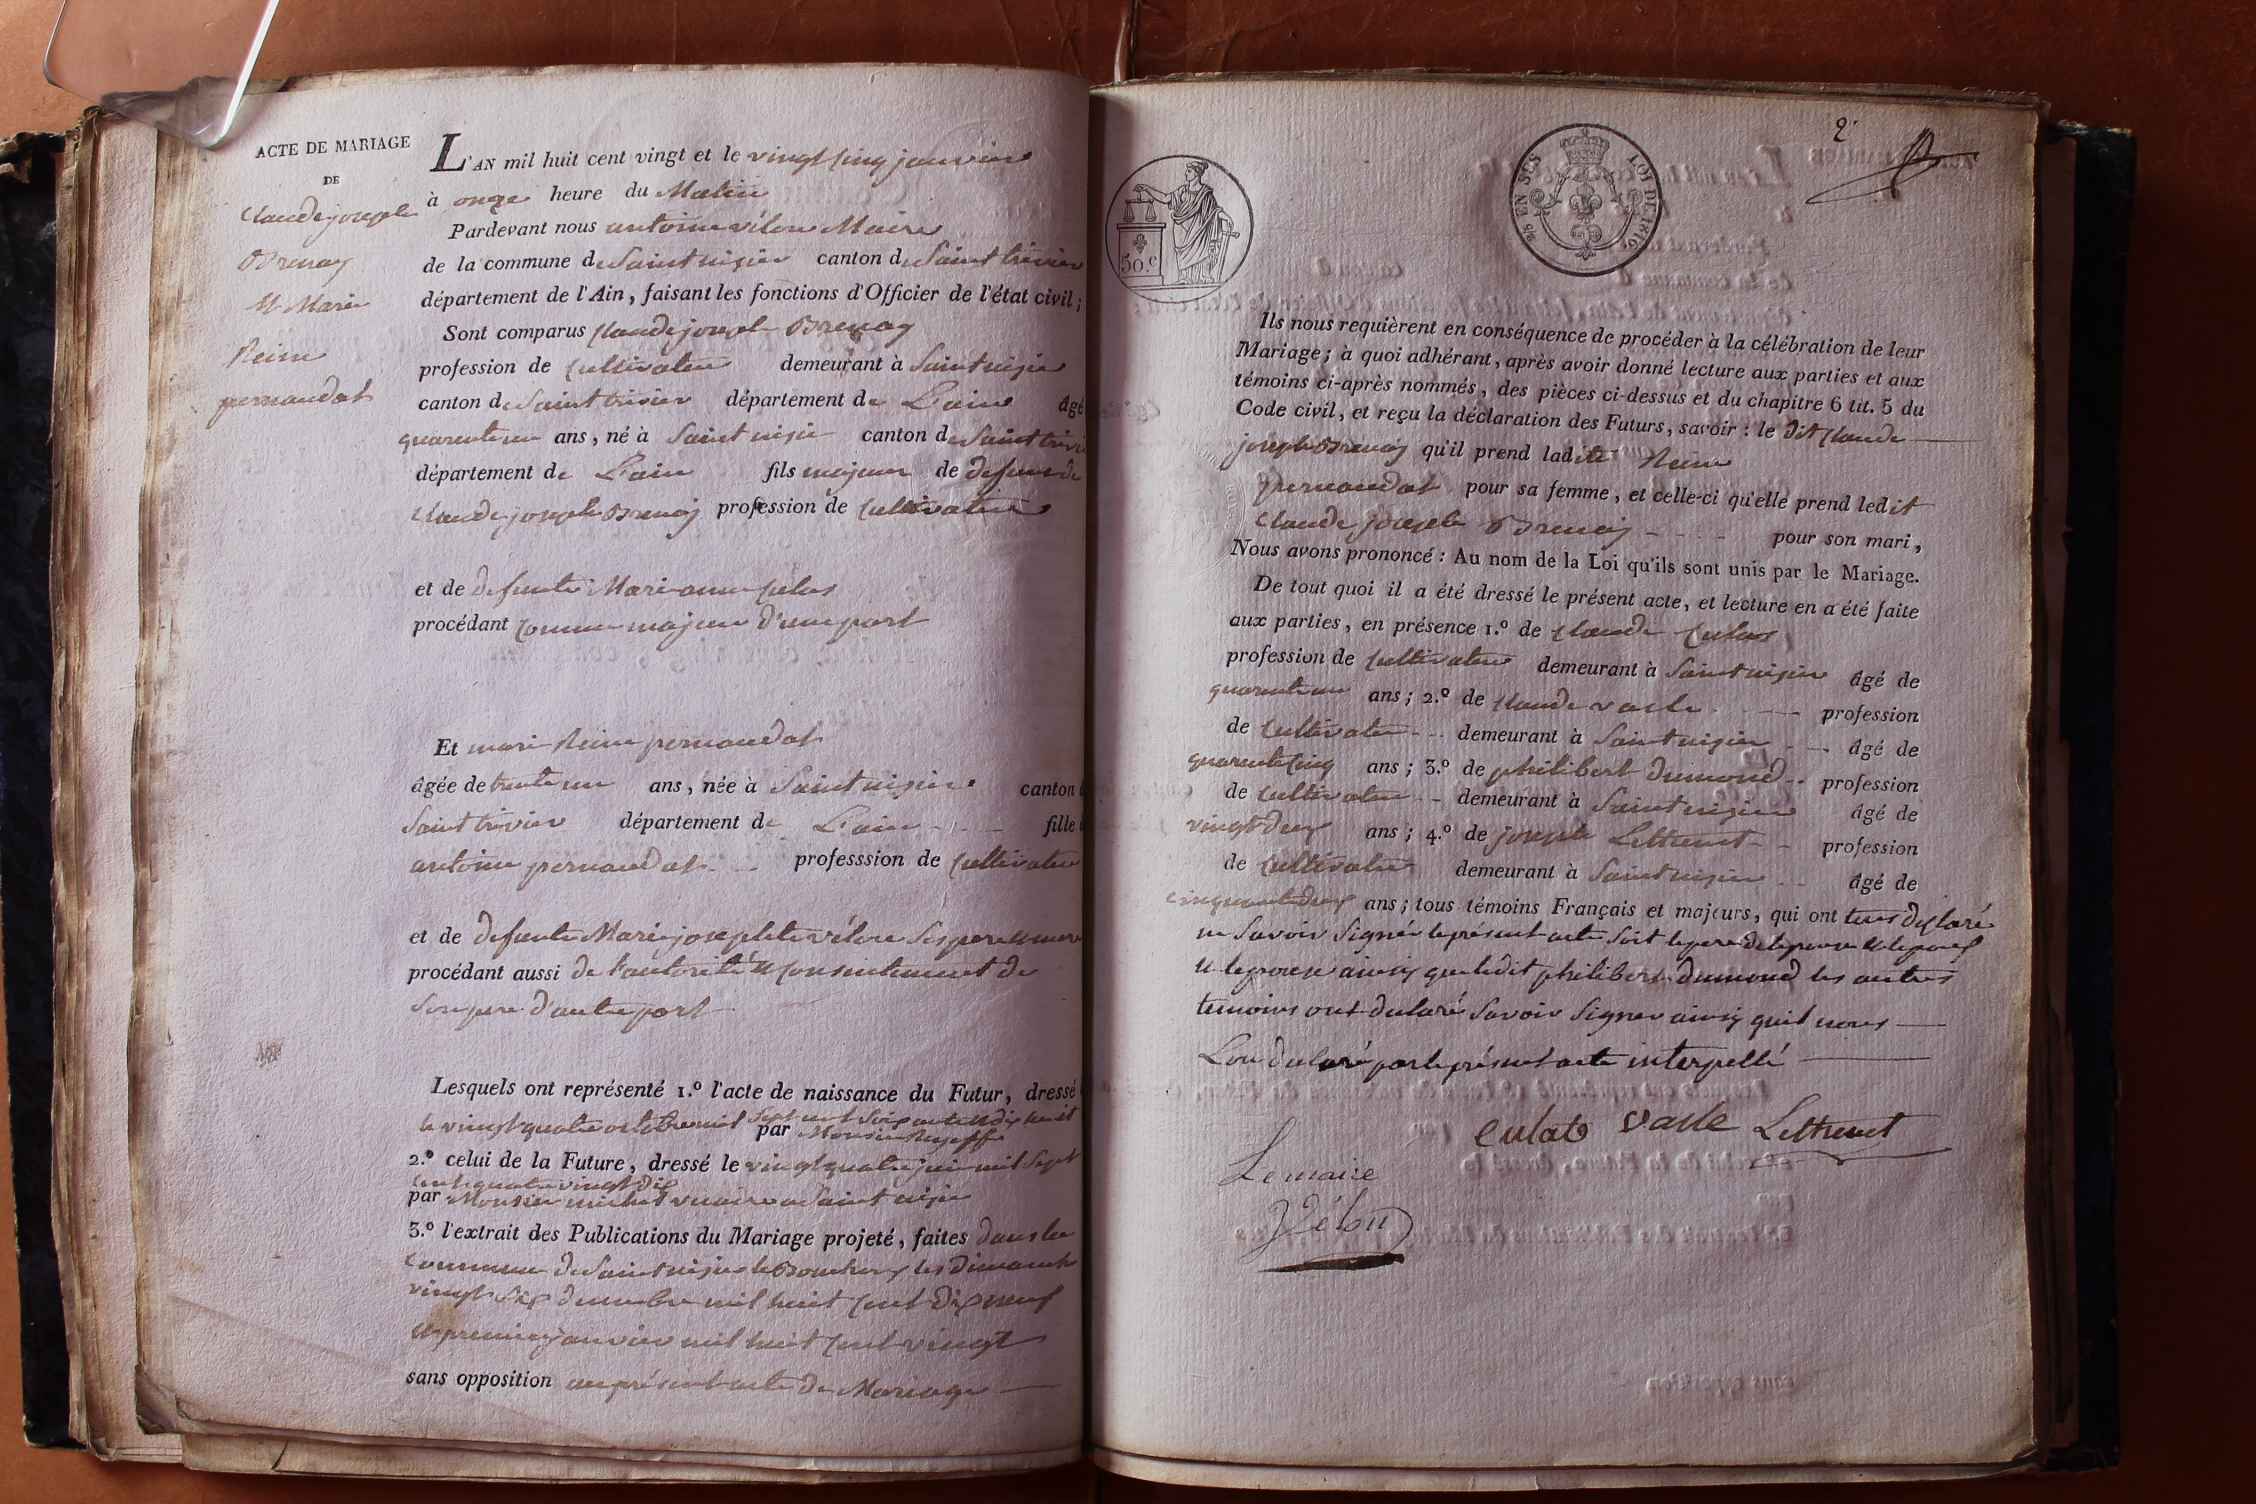 ACTE DE MARIAGE
DE
Claude joseph
Brenay
Et Marie
Reine
pernaudat
L'AN mil huit cent vingt et le vingt cinq janvier
à onze heure du Matin
Pardevant nous antoine vélon Maire
de la commune de Saint nizier canton de Saint trivier
département de l'Ain, faisant les fonctions d'Officier de l'état civil;
Sont comparus Claude joseph Brenay
profession de Cultivateur demeurant à Saint nizier
canton de Saint trivier département de L'ain âgé
quarente un ans, né à Saint nizier canton de Saint trivi
département de L'ain fils majeur de defunt
Claude joseph Brenay profession de Cultivateur
et de defunte Marianne
procédant comme majeur d'une part
Et marie Reine pernaudat
âgée de trente un ans, née à Saint nizier canton
Saint trivier département de L'ain fille
antoine pernaudat professsion de Cultivateur
et de defunte Marie josephte vélon Ses pere et mere
procédant aussi de l'autorité et Consentement de
Son pere d'autre part
Lesquels ont représenté 1.º l'acte de naissance du Futur, dressé
le vingt quatre octobre mil Sept cent Soixante et dix huit
par Monsieur
2.º celui de la Future, dressé le vingt quatre juin mil Sept
Cent quatre vingt dix
par Monsieur michel vicaire a Saint nizier
3.º l'extrait des Publications du Mariage projeté, faites dans la
Commune de Saint nizier le Bouchoux les Dimanche
vingt Six decembre mil huit Cent dix neuf
et premier janvier mil huit Cent vingt
sans opposition au présent acte de Mariage
2.
50.c
EN SUS
LOI DE 1816
Ils nous requièrent en conséquence de procéder à la célébration de leur
Mariage; à quoi adhérant, après avoir donné lecture aux parties et aux
témoins ci-après nommés, des pièces ci-dessus et du chapitre 6 tit. 5 du
Code civil, et reçu la déclaration des Futurs, savoir: le dit Claude
joseph Brenay qu'il prend ladite Reine
pernaudat pour sa femme, et celle-ci qu'elle prend ledit
Claude joseph Brenay pour son mari,
Nous avons prononcé: Au nom de la Loi qu'ils sont unis par le Mariage.
De tout quoi il a été dressé le présent acte, et lecture en a été faite
aux parties, en présence 1.º de Claude Culas
profession de Cultivateur demeurant à Saint nizier âgé de
quarente un ans; 2.º de Claude varle profession
de Cultivateur demeurant à Saint nizier âgé de
quarente Cinq ans; 3.º de philibert dumond profession
de Cultivateur demeurant à Saint nizier âgé de
vingt deux ans; 4.º de joseph Lettunet profession
de Cultivateur demeurant à Saint nizier âgé de
cinquante deux ans; tous témoins Français et majeurs, qui ont tous declaré
ne Savoir Signer le présent acte Soit le pere de l'epouse
et lepouse ainsy que ledit philibert dumond les autres
temoins ont declaré Savoir Signer ainsy quil nous
L'on declaré par le présent acte interpellé
culat varle Lettunet
Lemaire
Vélon